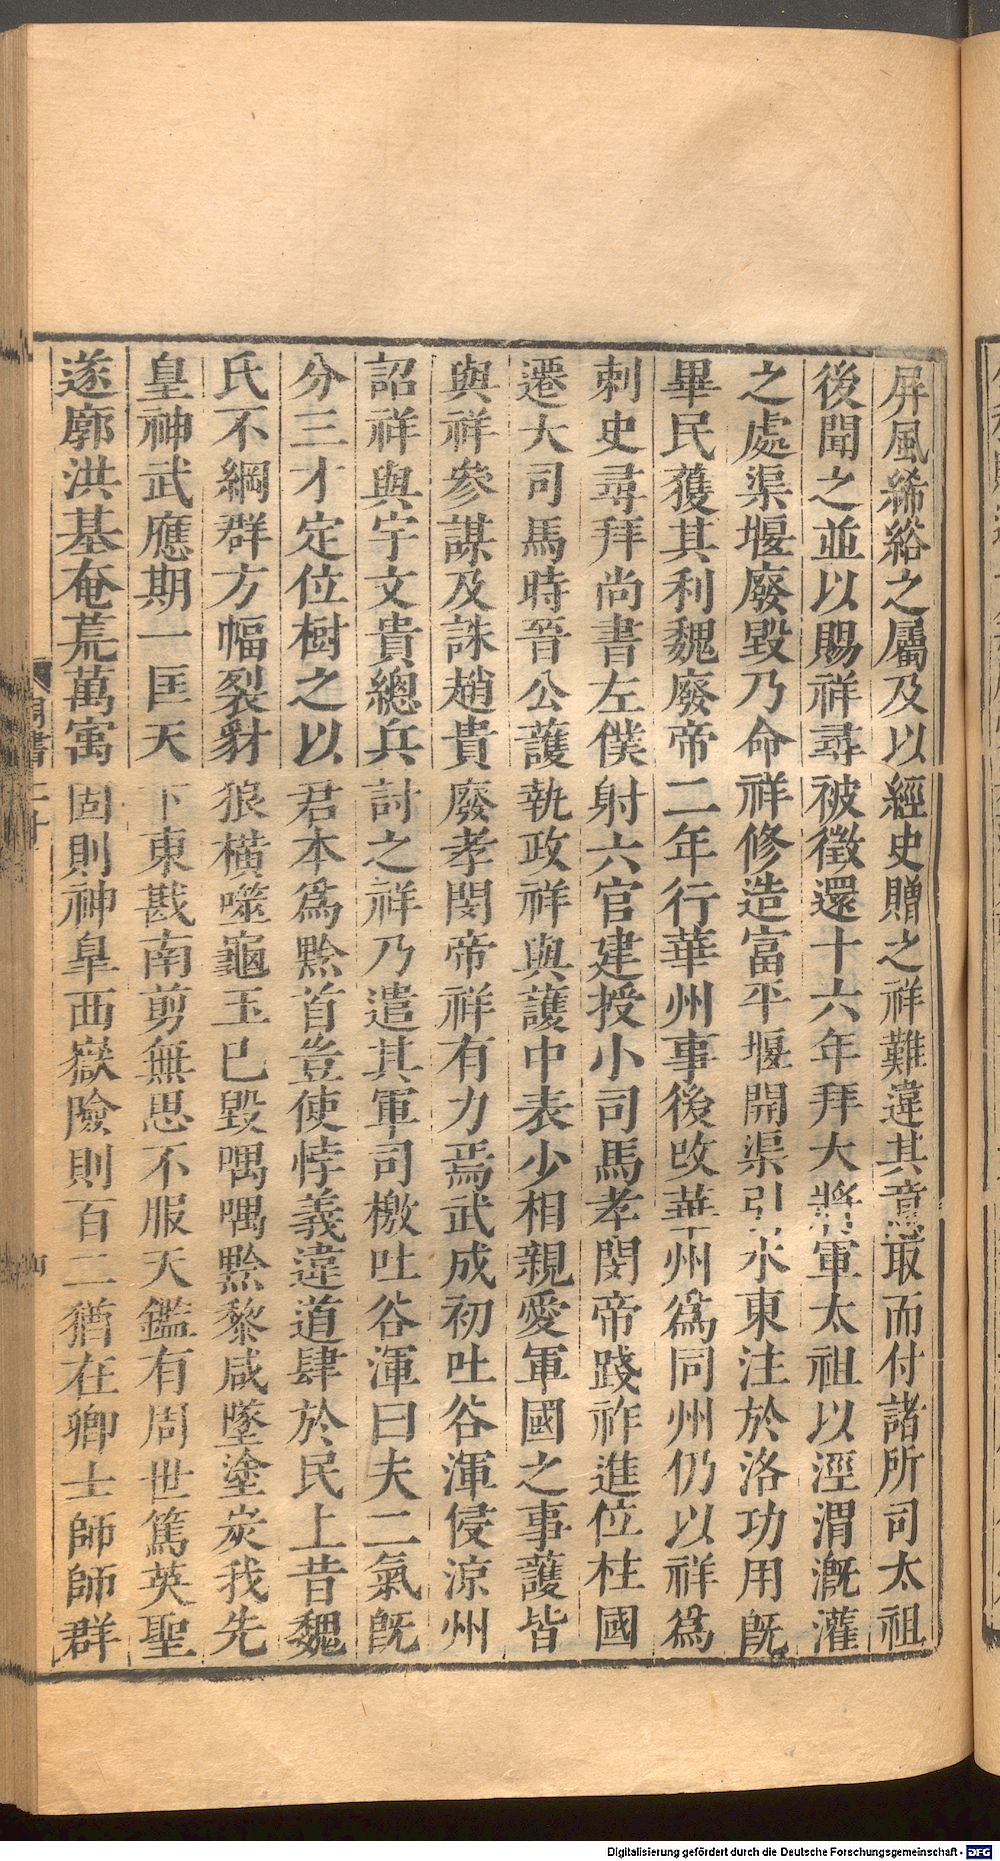 屏風絺綌之屬及以經史贈之祥難違其意取而付諸所司太祖
後聞之並以賜祥尋被徵還十六年拜大將軍太祖以涇渭漑灌
之處渠堰廢毀乃命祥修造富平堰開渠引水東注於洛功用旣
畢民獲其利魏廢帝二年行華州事後改華州爲同州仍以祥爲
刺史尋拜尚書左僕射六官建授小司馬孝閔帝踐祚進位柱國
遷大司馬時晉公護執政祥與護中表少相親愛軍國之事護皆
與祥參謀及誅趙貴廢孝閔帝祥有力焉武成初吐谷渾侵涼州
詔祥與宇文貴總兵討之祥乃遣其軍司檄吐谷渾曰夫二氣旣
分三才定位樹之以君本爲黔首豈使悖義違道肆於民上昔魏
氏不綱群方幅裂豺狼橫噬龜玉已毀喁喁黔黎咸墜塗炭我先
皇神武應期一匡天下東戡南剪無思不服天鑑有周世篤英聖
遂廓洪基奄荒萬㝢固則神皐西嶽險則百二猶在卿士師師群
周書二十
Digitalisierung gefördert durch die Deutsche Forschungsgemeinschaft - DFG